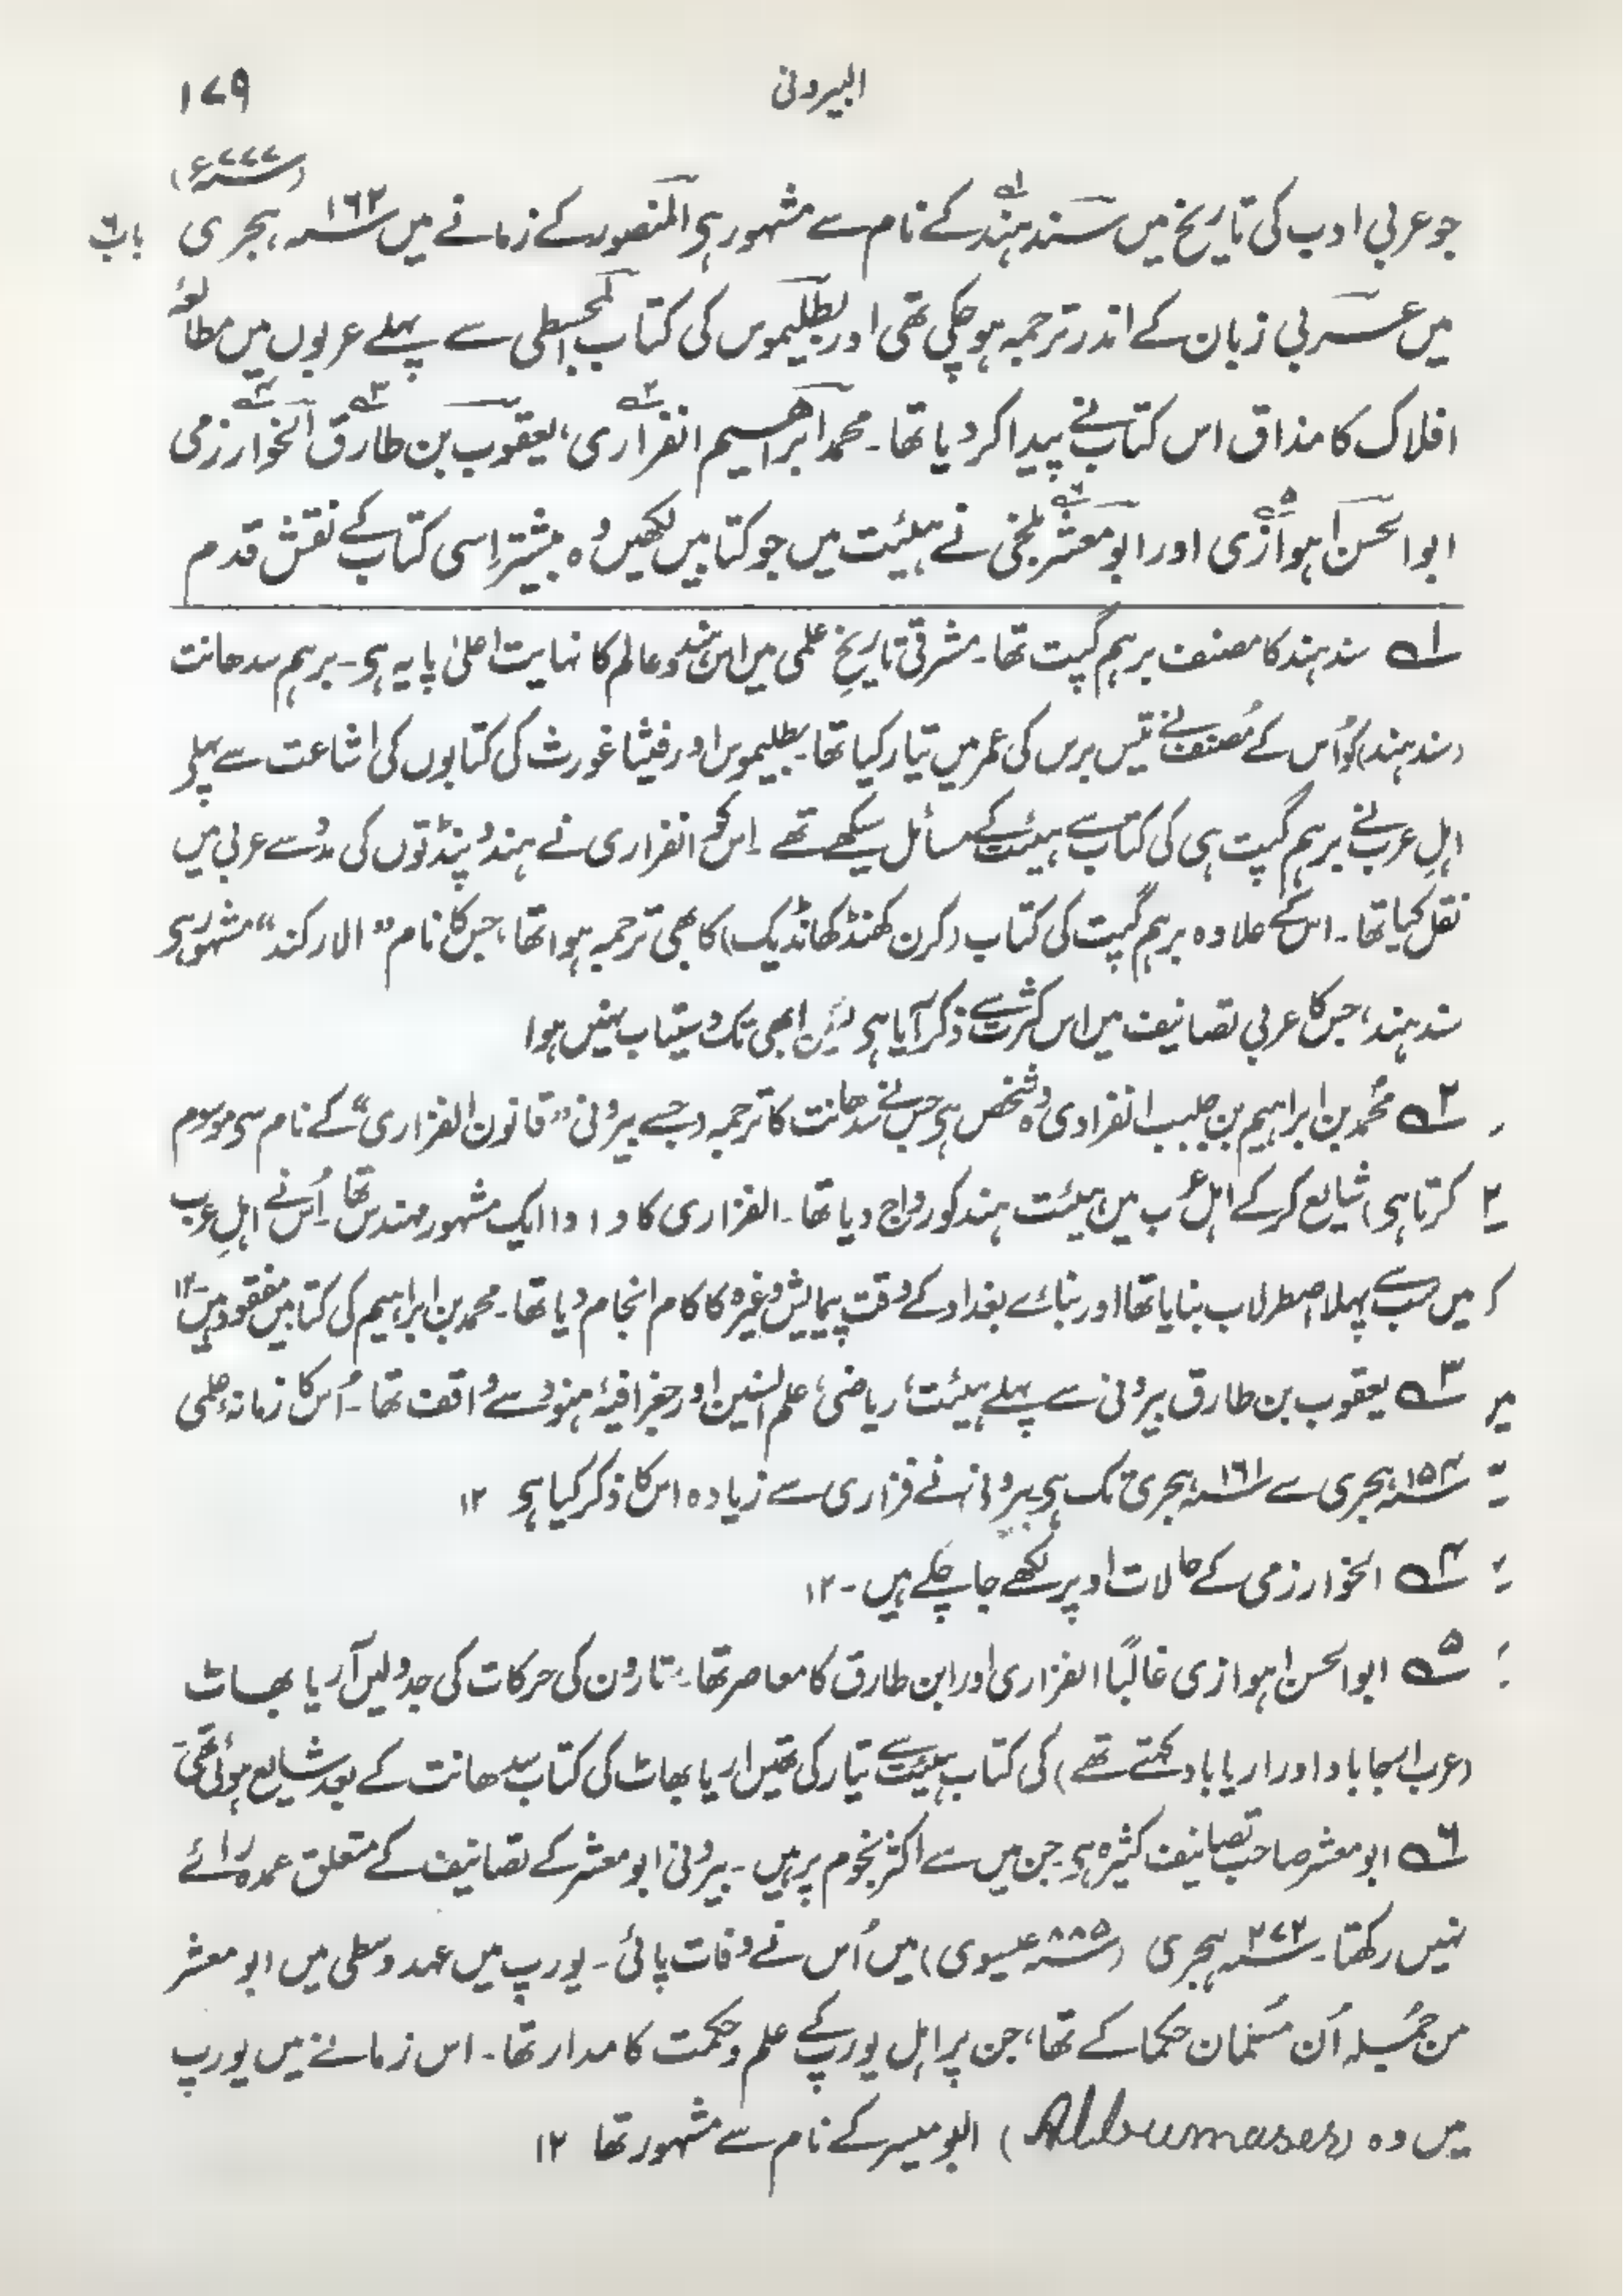 البیرونی ۱۷۹
(سنہ ۷۷۷ء)
جو عربی ادب کی تاریخ میں سند ہند۱؎ کے نام سے مشہور ہی المنصور کے زمانے میں سنہ ۱۶۲ ہجری باب ۶
میں عربی زبان کے اندر ترجمہ ہو چکی تھی اور بطلیموس کی کتاب مجسطی سے پہلے عربوں میں مطالعۂ
افلاک کا مذاق اس کتاب نے پیدا کر دیا تھا۔ محمد ابراہیم انفراری۲؎، یعقوب بن طارق۳؎ الخوارزمی۴؎
ابوالحسن اہوازی۵؎ اور ابو معشر۶؎ بلخی نے ہیئت میں جو کتابیں لکھیں وہ بیشتر اِسی کتاب کے نقش قدم
۱؎ سند ہند کا مصنف برہم گپت تھا۔ مشرقی تاریخِ علمی میں اس ہندو عالم کا نہایت اعلیٰ پایہ ہی۔ برہم سدھانت
(سند ہند) کو اُس کے مُصنف نے تیس برس کی عمر میں تیار کیا تھا۔ بطلیموس اور فیثاغورث کی کتابوں کی اشاعت سے پہلے
اہلِ عرب نے برہم گپت ہی کی کتاب سے ہیئت کے مسائل سیکھے تھے۔ اس کو انفراری نے ہندو پنڈتوں کی مدد سے عربی میں
نقل کیا تھا۔ اس کے علاوہ برہم گپت کی کتاب (کرن کھنڈ کھانڈیک) کا بھی ترجمہ ہوا تھا، جس کا نام "الارکند" مشہور ہی
سند ہند، جس کا عربی تصانیف میں اس کثرت سے ذکر آیا ہی لیکن ابھی تک دستیاب نہیں ہوا
۲؎ محمد بن ابراہیم بن حبیب انفرادی وہ شخص ہی جس نے سدھانت کا ترجمہ (جسے بیرونی "قانون الفزاری" کے نام سی موسوم
کرتا ہی) شایع کر کے اہل عرب میں ہیئت ہند کو رواج دیا تھا۔ الفزاری کا دادا ایک مشہور مہندس تھا۔ اُس نے اہلِ عرب
میں سب سے پہلا اصطرلاب بنایا تھا اور بنائے بغداد کے وقت پیمایش وغیرہ کا کام انجام دیا تھا۔ محمد بن ابراہیم کی کتابیں مفقود ہیں۔۱۲
۳؎ یعقوب بن طارق بیرونی سے پہلے ہیئت، ریاضی، علم السنین اور جغرافیۂ ہنود سے واقف تھا۔ اُس کا زمانۂ علمی
سنہ ۱۵۴ ہجری سے سنہ ۱۶۱ ہجری تک ہی بیرونی نے فزاری سے زیادہ اس کا ذکر کیا ہی ۱۲
۴؎ الخوارزمی کے حالات اوپر لکھے جا چکے ہیں۔۱۲
۵؎ ابوالحسن اہوازی غالباً الفزاری اور ابن طارق کا معاصر تھا۔ ستارون کی حرکات کی جدولیں آریا بھاٹ
(عرب ارجاباد اور اریاباد کہتے تھے) کی کتاب ہیئت سے تیار کی تھیں اریا بھاٹ کی کتاب سدھانت کے بعد شایع ہوئی تھی
۶؎ ابو معشر صاحب تصانیف کثیرہ ہی جن میں سے اکثر نجوم پر ہیں۔ بیرونی ابو معشر کے تصانیف کے متعلق عمدہ رائے
نہیں رکھتا۔ سنہ ۲۷۲ ہجری (سنہ ۸۸۵ عیسوی) میں اُس نے وفات پائی۔ یورپ میں عہد وسطی میں ابو معشر
من جملہ اُن مسلمان حکما کے تھا، جن پر اہل یورپ کے علم و حکمت کا مدار تھا۔ اس زمانے میں یورپ
میں وہ (Albumaser) البو میسر کے نام سے مشہور تھا ۱۲